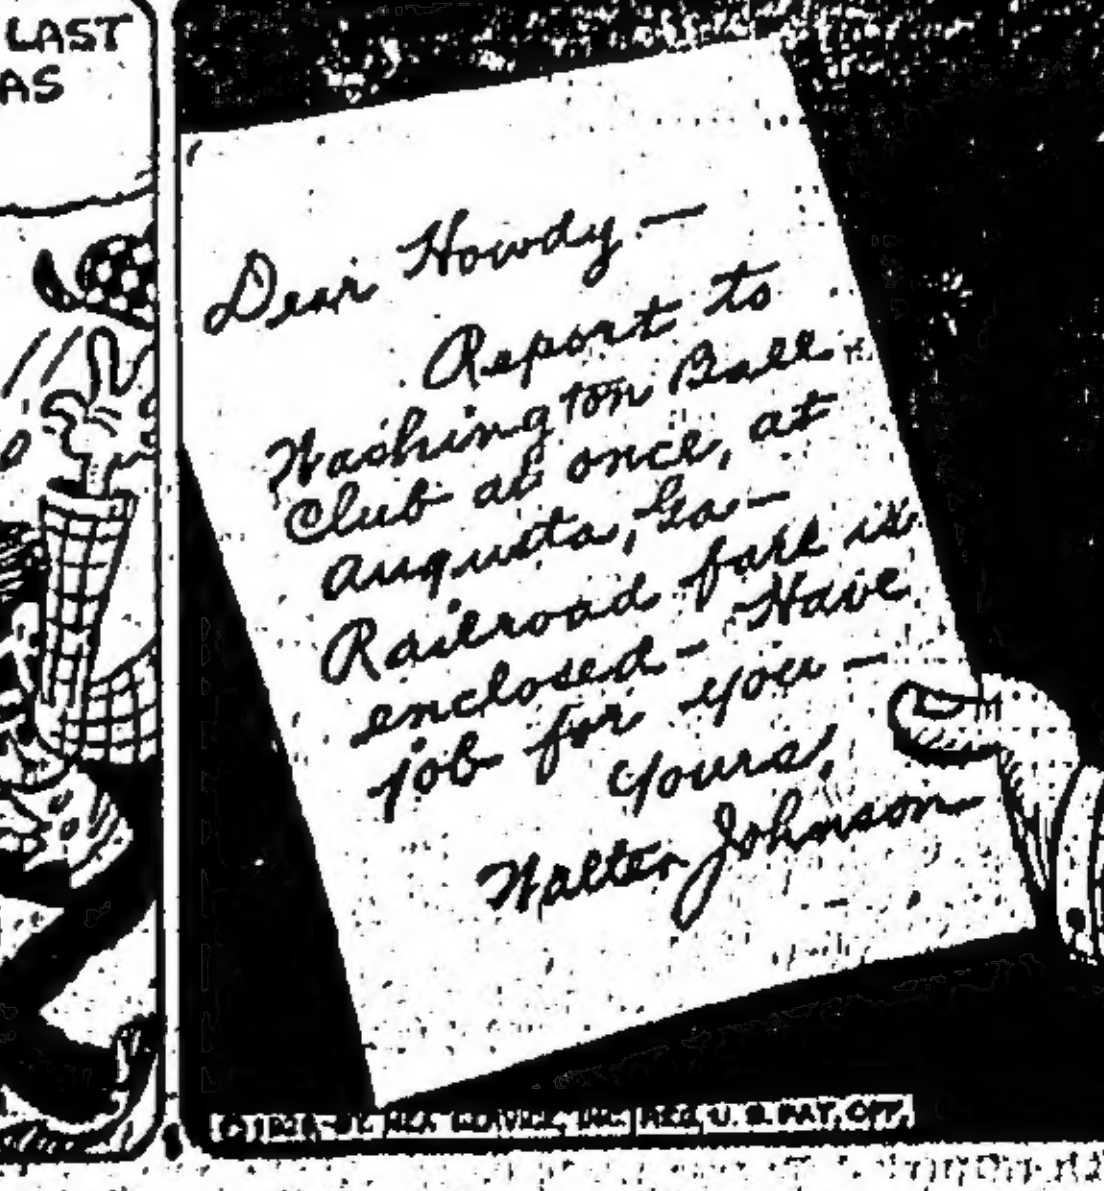 LAST
AS
Dear Howdy —
Report to
Washington Ball
Club at once, at
Augusta, Ga —
Railroad fare is
enclosed — Have
job for you —
Yours,
Walter Johnson
BY NEA SERVICE, INC. REG. U. S. PAT. OFF.